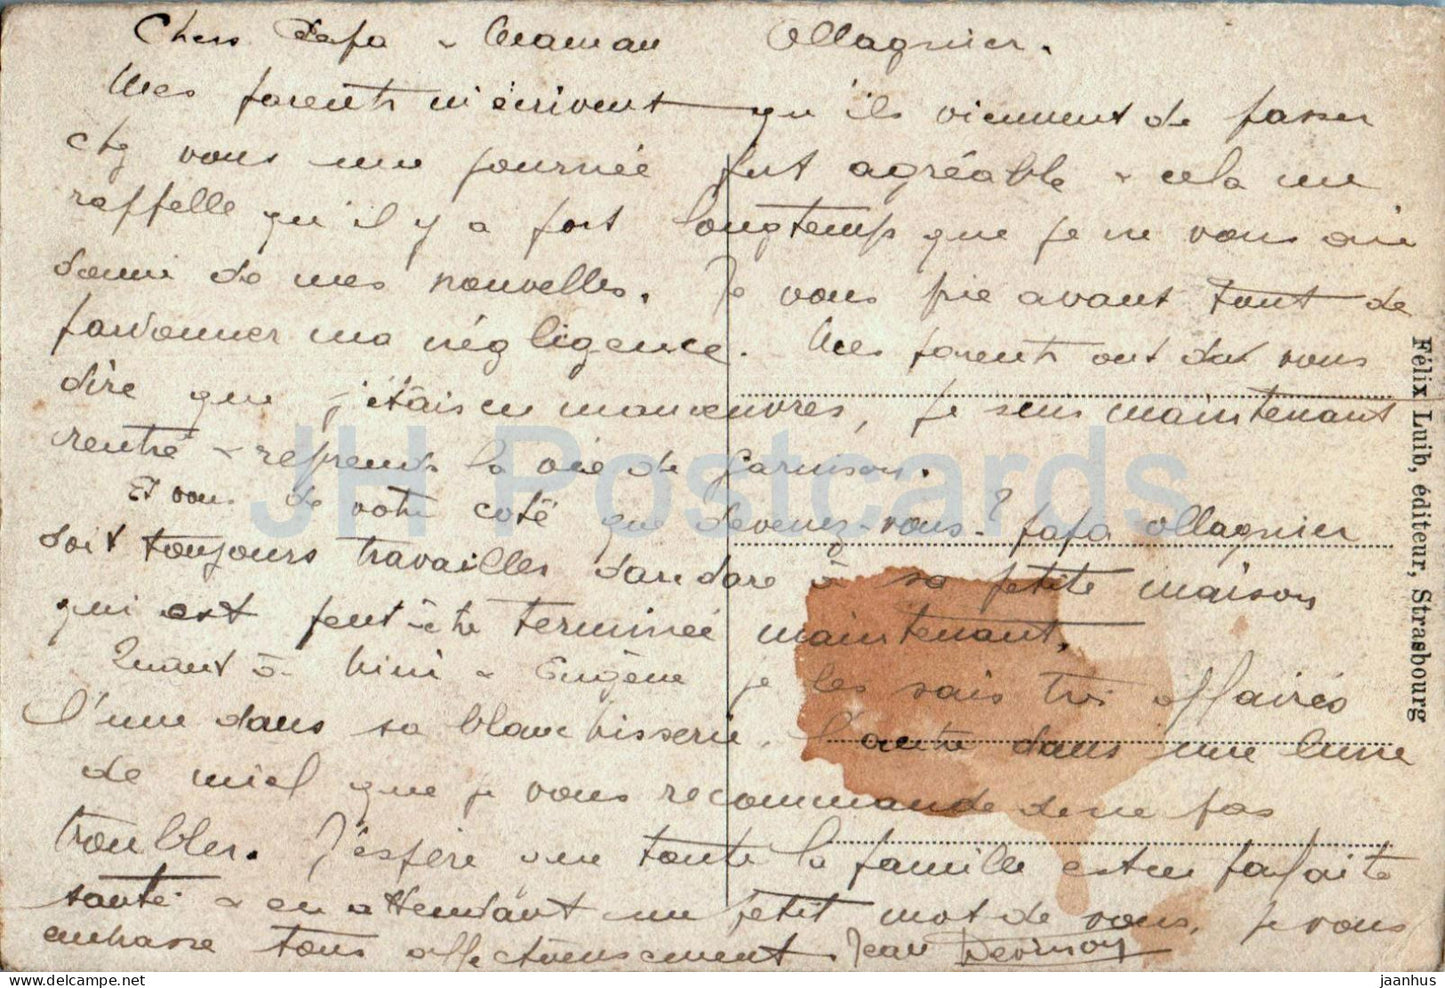 Chers Papa & Maman Ollagnier.
Mes parents m'écrivent qu'ils viennent de passer
chez vous une journée fort agréable & cela me
rappelle qu'il y a fort longtemps que je ne vous ai
donné de mes nouvelles. Je vous prie avant tout de
pardonner ma négligence. Mes parents ont dû vous
dire que j'étais en manœuvres, je suis maintenant
rentré & reprends la vie de garnison.
Et vous de votre coté que devenez-vous? Papa Ollagnier
doit toujours travailler dare dare à sa petite maison
qui est peut-être terminée maintenant.
Quant à Nini & Eugène je les sais très affairés
l'une dans sa blanchisserie, l'autre dans une lune
de miel que je vous recommande de ne pas
troubler. J'espère que toute la famille est en parfaite
santé & en attendant un petit mot de vous, je vous
embrasse tous affectueusement. Jean
Félix Luib, éditeur, Strasbourg
JH Postcards
jaanhus